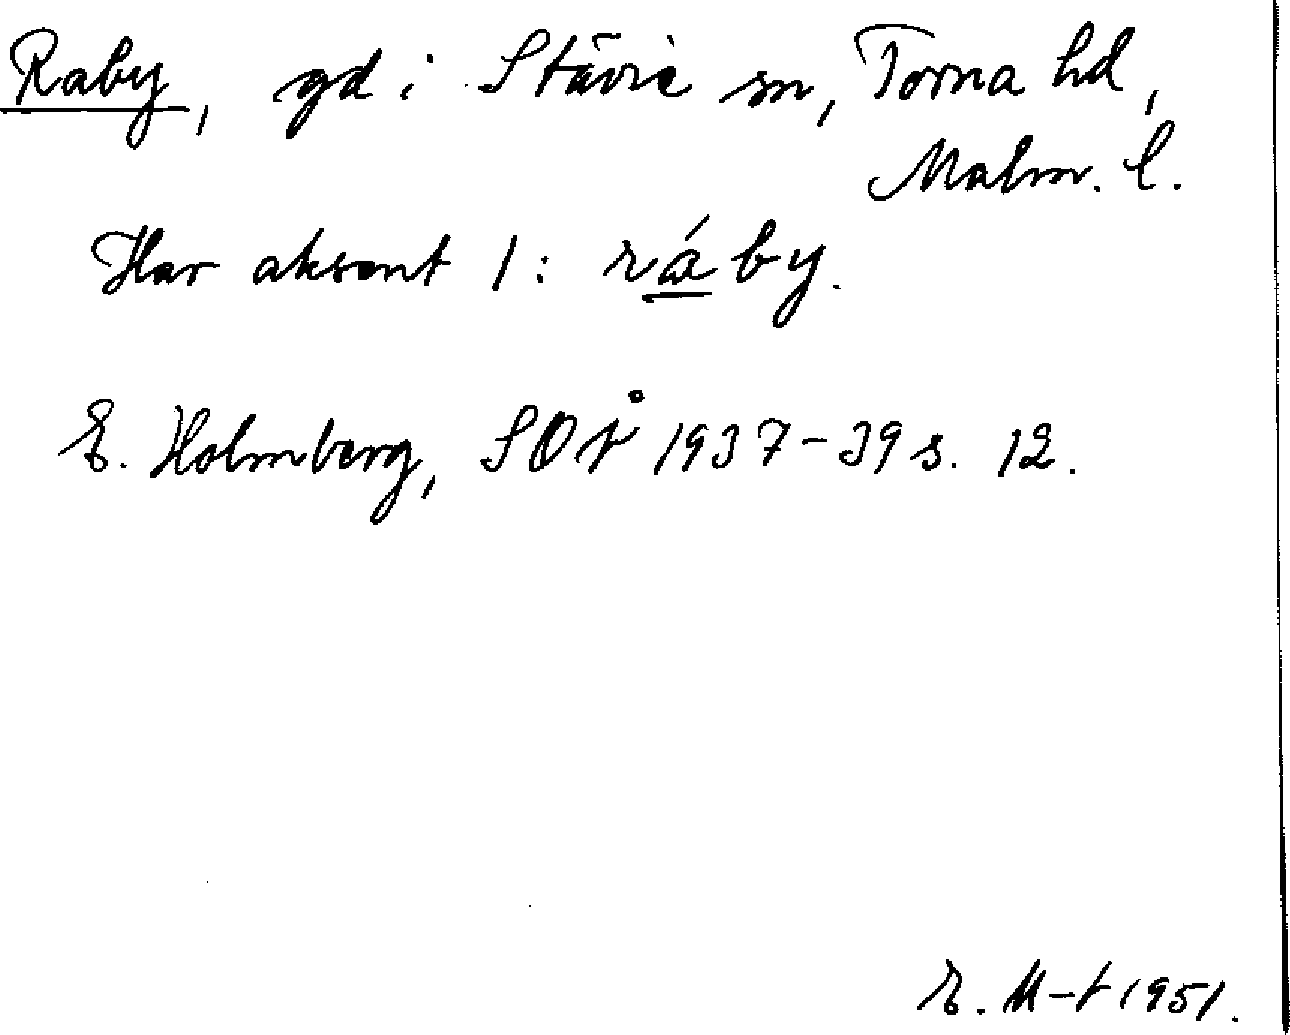 Raby, gd i Stävie sn, Torna hd,
Malm. l.
Har aksent 1: ráby.
E. Holmberg, SOÅ 1937-39 s. 12.
E. M-t 1951.